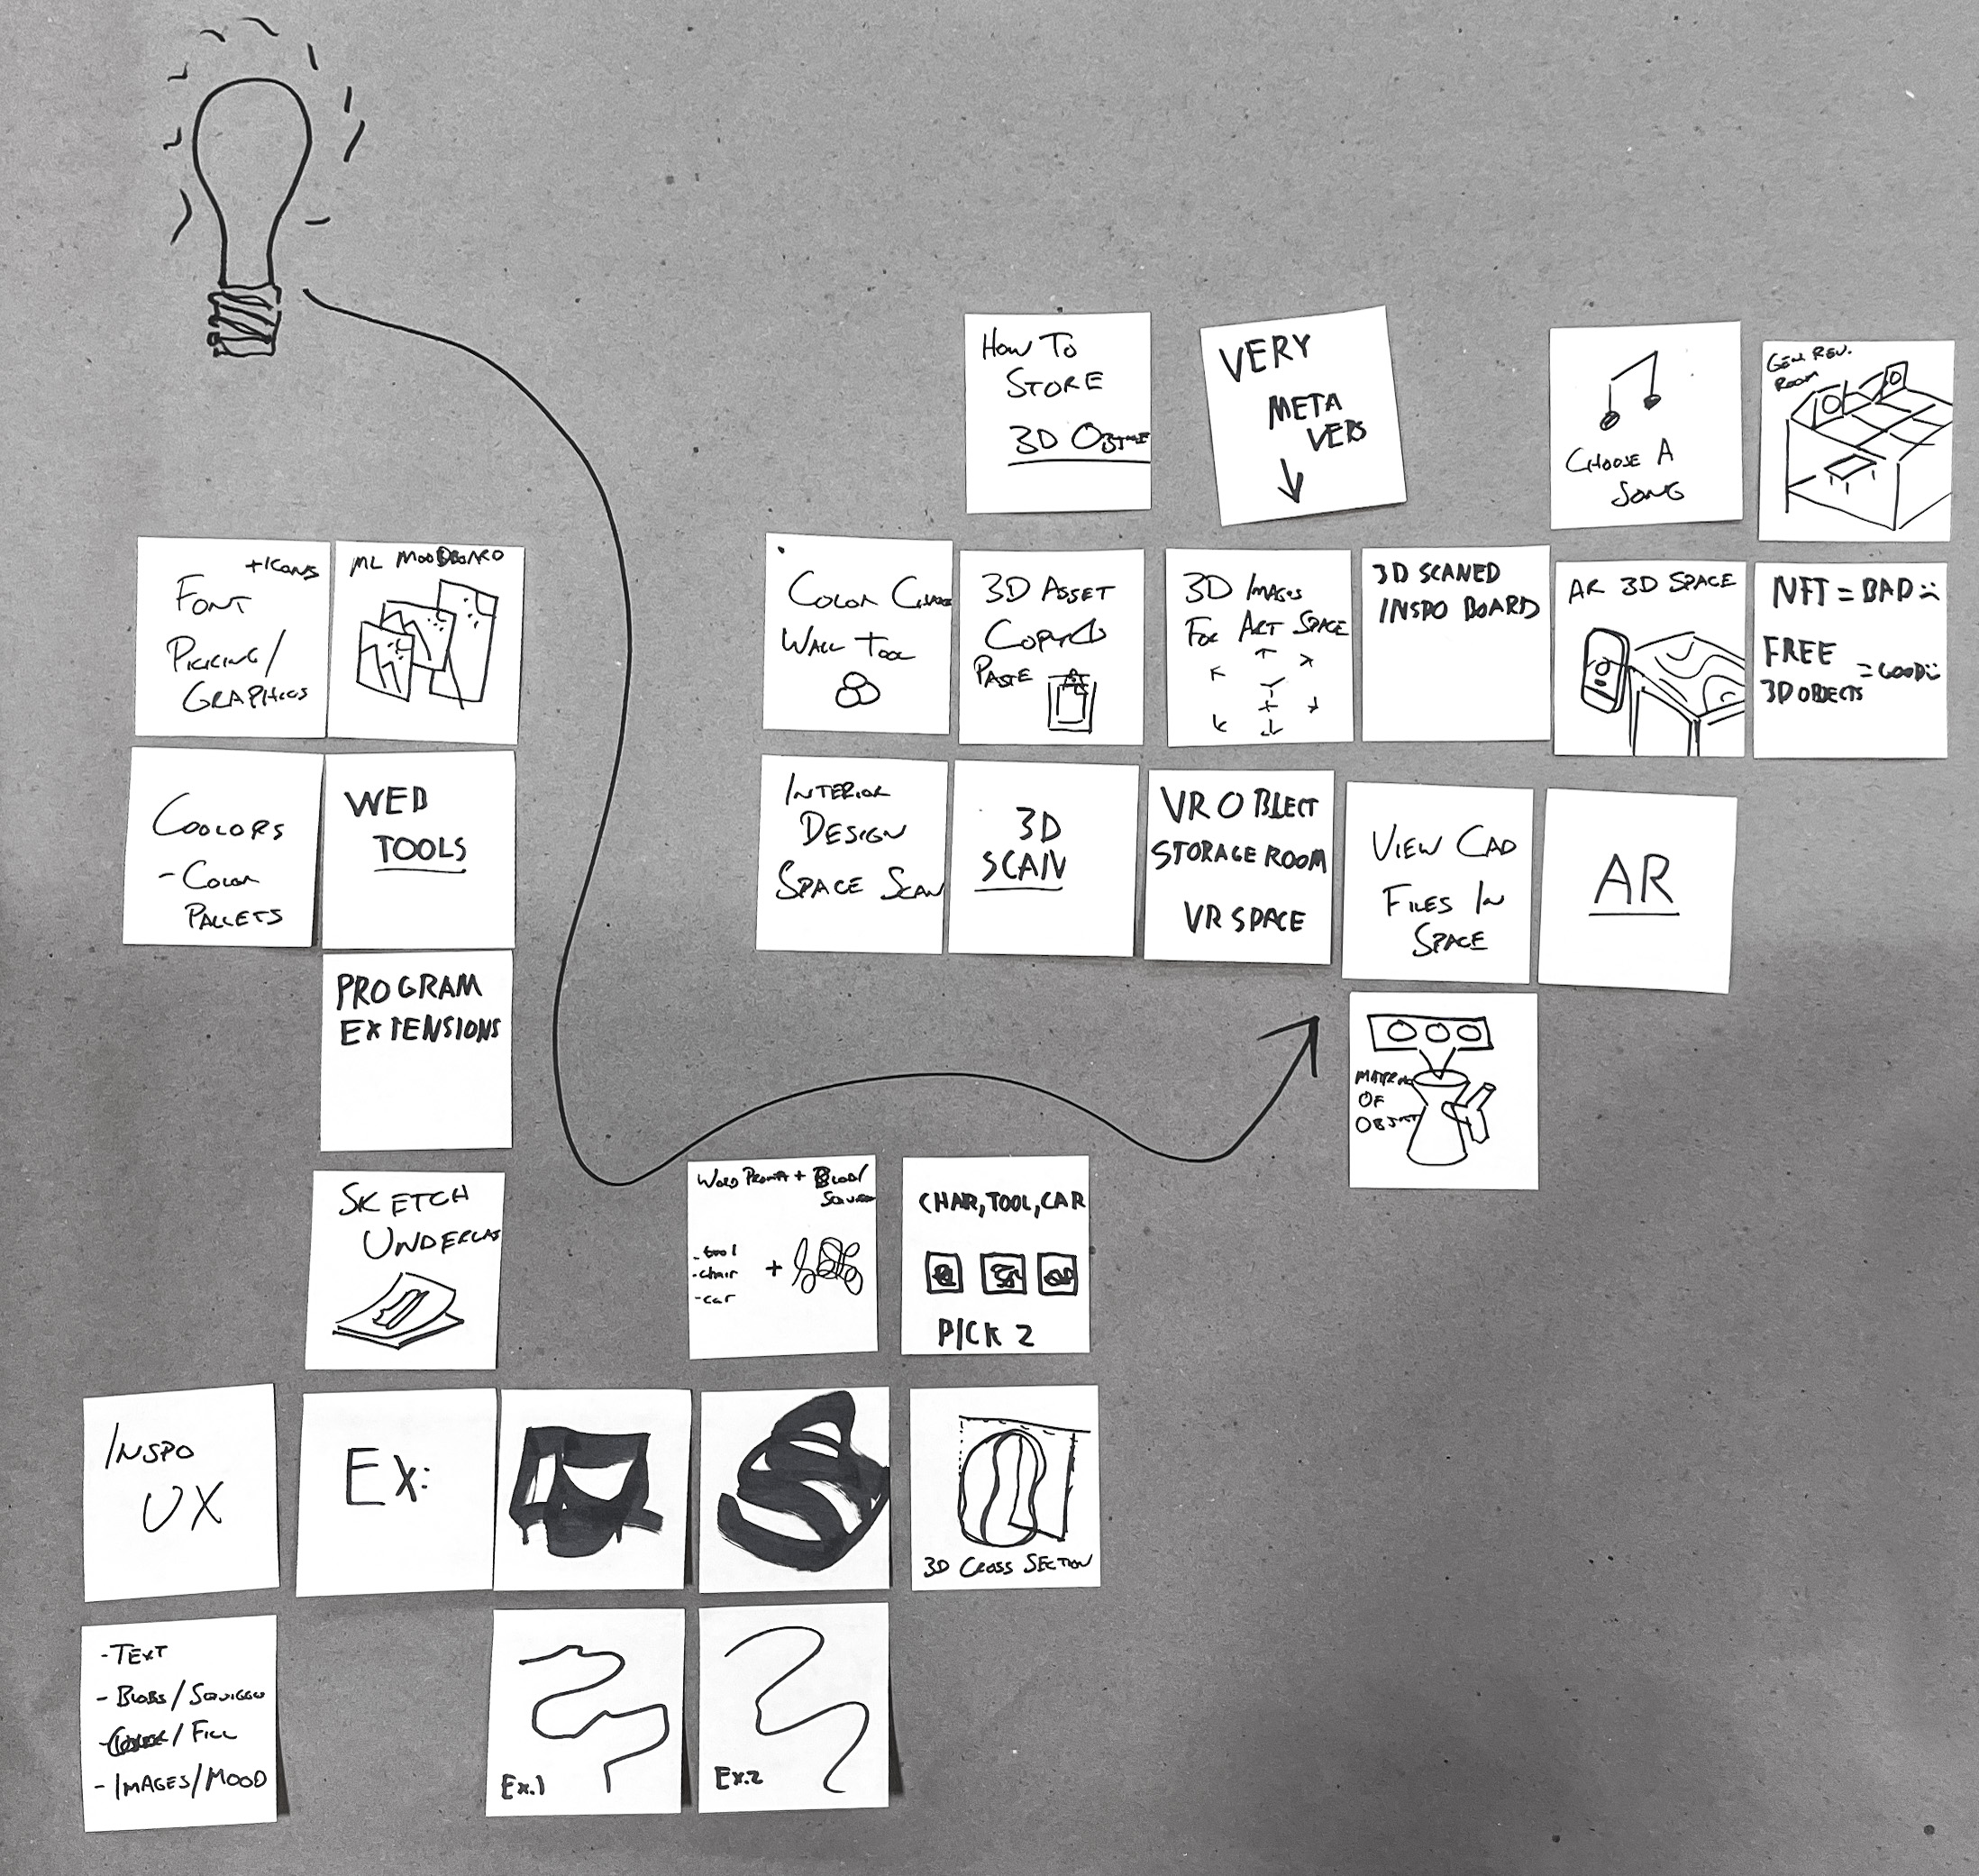 HOW TO
STORE
3D
VERY
META
VERS
↓
CHOOSE A
SONG
GEN. REV.
ROOM
+ICONS
FONT
PICKING/
GRAPHICS
ML MOODBOARD
COLOR
WALL TOOL
3D ASSET
COPY &
PASTE
3D IMAGES
FOR ART SPACE
3D SCANED
INSPO BOARD
AR 3D SPACE
NFT = BAD :(
FREE
3D OBJECTS
= GOOD :)
COOLORS
- COLOR
PALLETS
WEB
TOOLS
INTERIOR
DESIGN
SPACE SCAN
3D
SCAN
VR OBJECT
STORAGE ROOM
VR SPACE
VIEW CAD
FILES IN
SPACE
AR
PROGRAM
EXTENSIONS
OF
SKETCH
WORD PROMPT + BLOB/
- tool
- chair
- car
+
CHAR, TOOL, CAR
PICK 2
INSPO
UX
EX:
3D CROSS SECTION
- TEXT
- BLOBS/SQUIGGLE
/FILL
- IMAGES/MOOD
Ex.1
Ex.2